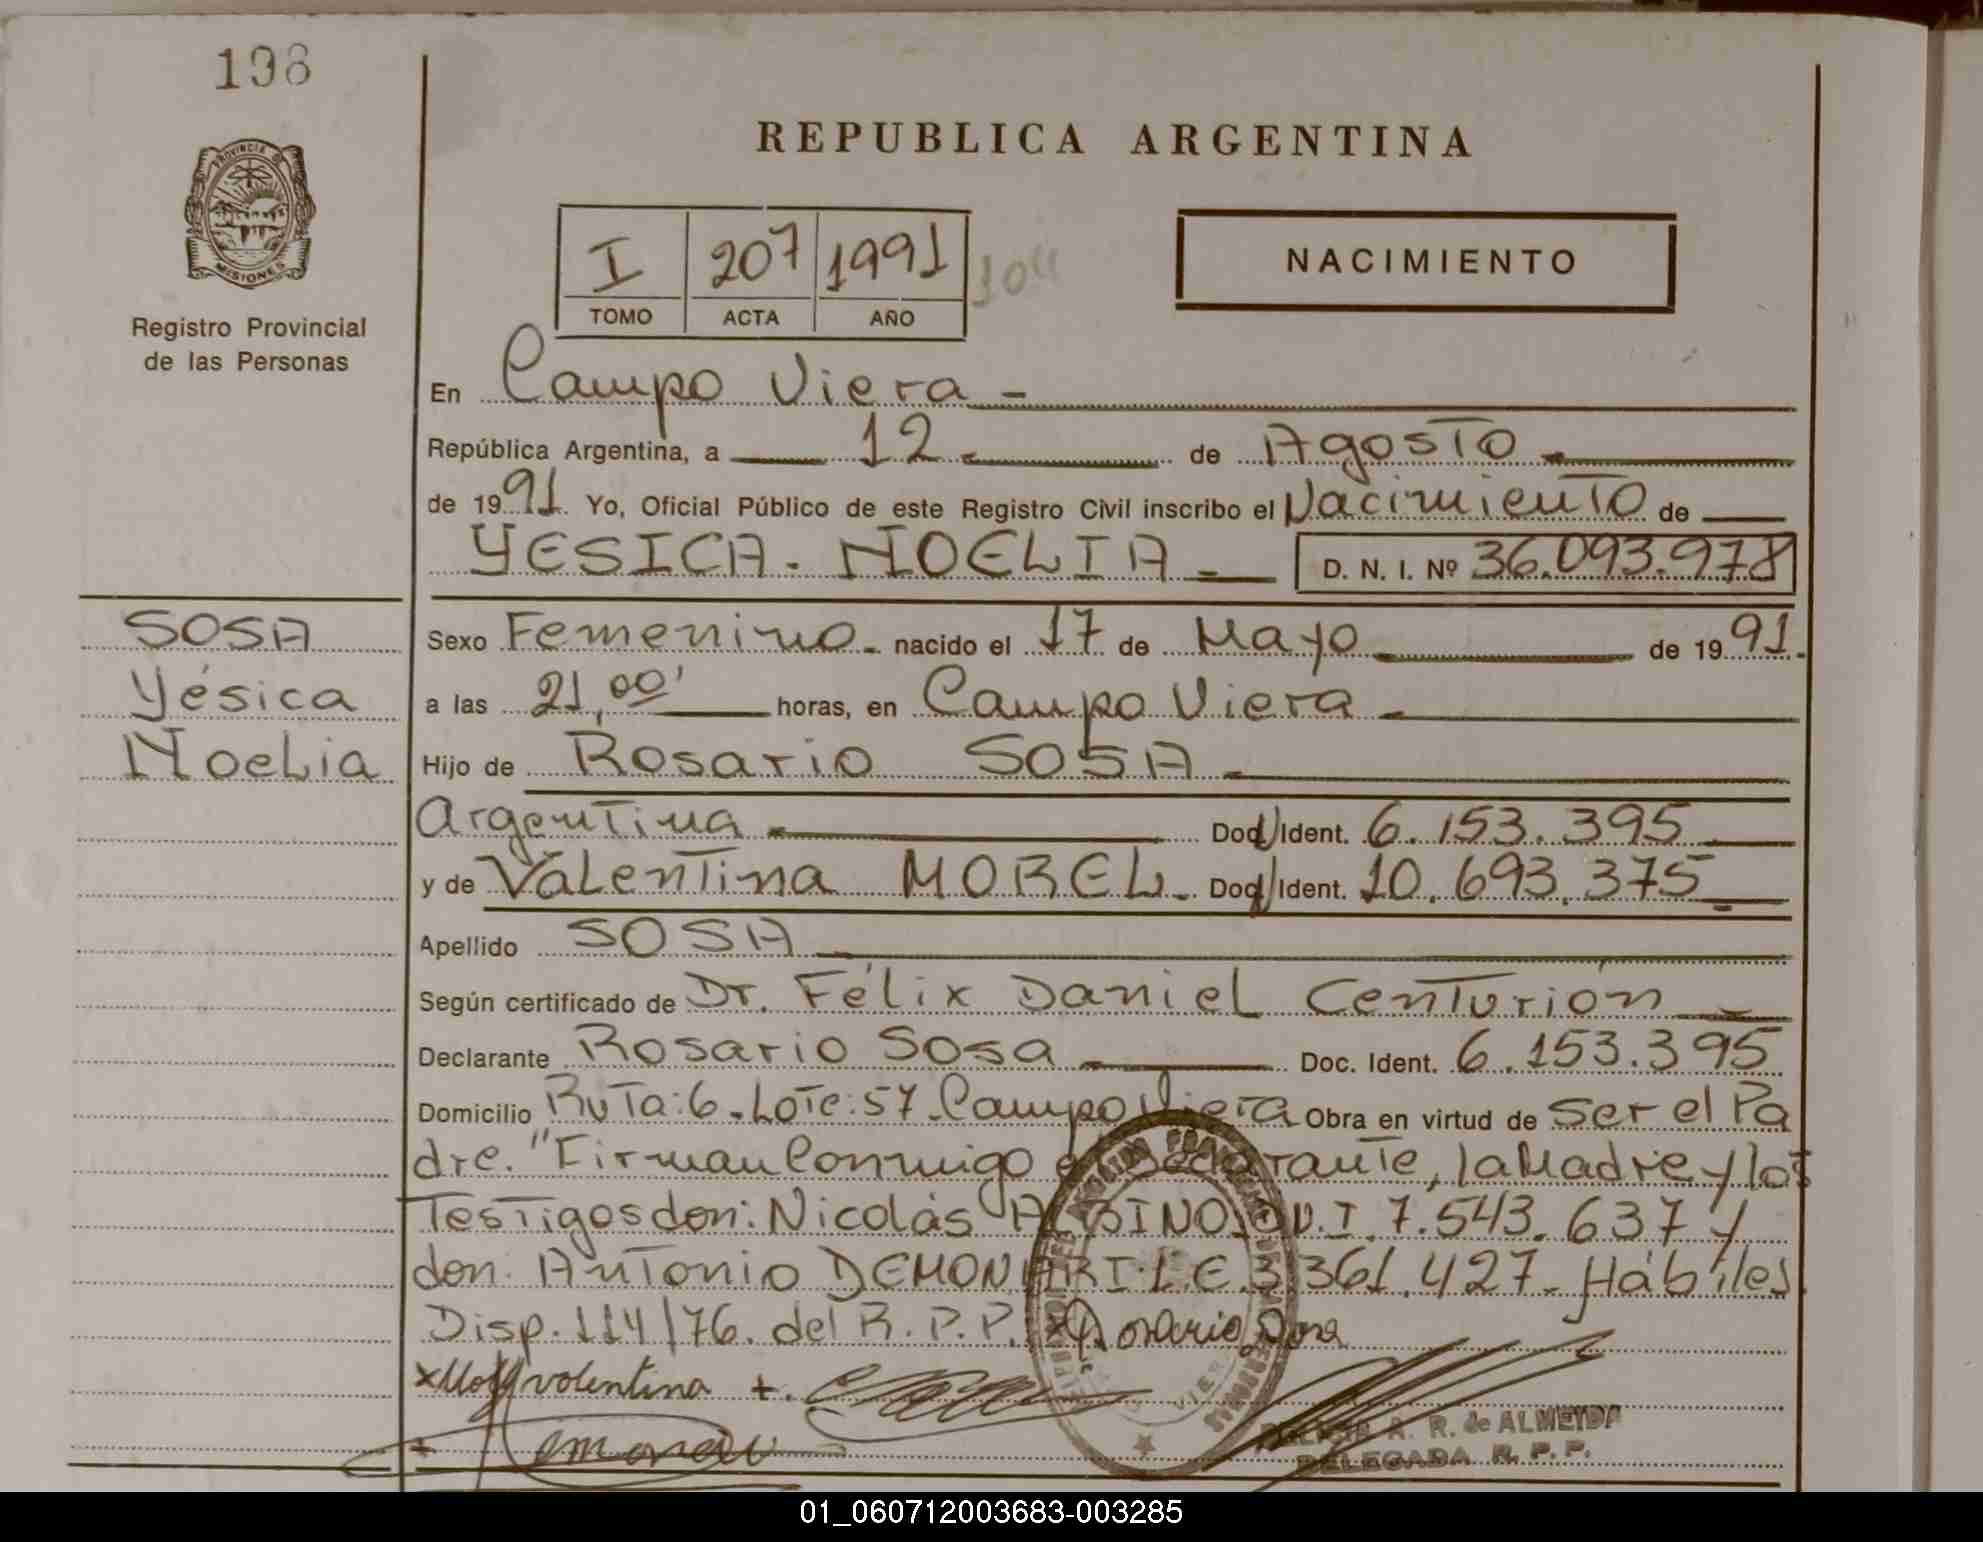 198
PROVINCIA DE
MISIONES
Registro Provincial
de las Personas
REPUBLICA ARGENTINA
I 207 1991
TOMO ACTA AÑO
NACIMIENTO
En Campo Viera -
República Argentina, a 12 de Agosto
de 1991. Yo, Oficial Público de este Registro Civil inscribo el Nacimiento de
YESICA. NOELIA D. N. I. Nº 36.093.978
SOSA
Yésica
Noelia
Sexo Femenino nacido el 17 de Mayo de 1991.
a las 21,00' horas, en Campo Viera
Hijo de Rosario SOSA
Argentina Doc. Ident. 6.153.395
y de Valentina MOREL Doc. Ident. 10.693.375
Apellido SOSA
Según certificado de Dr. Félix Daniel Centurión
Declarante Rosario Sosa Doc. Ident. 6.153.395
Domicilio Ruta:6. Lote:57. Campo Viera Obra en virtud de Ser el Pa
dre. "Firman Conmigo el Declarante, la Madre y los
Testigos don: Nicolás ALBINO. D.N.I. 7.543.637 y
don: Antonio DEMONARI. L.E. 3.361.427. Hábiles
Disp. 114/76. del R.P.P. x Rosario Sosa
valentina
A. R. de ALMEYDA
DELEGADA R. P. P.
01_060712003683-003285